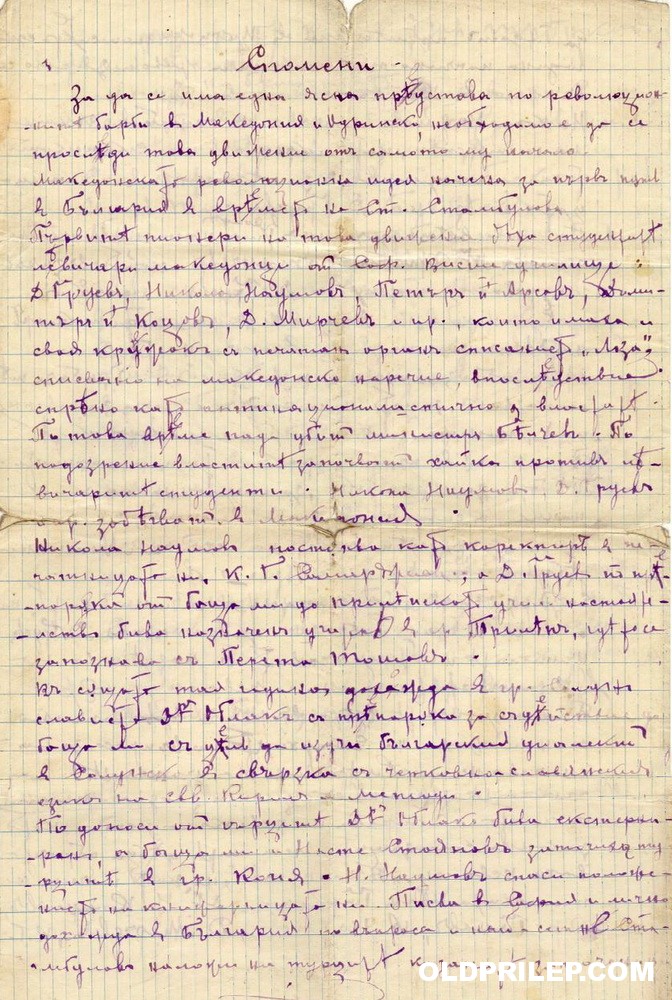 3
Спомени -
За да се има една ясна прѣдстава по революцион-
-нитѣ борби в Македония и Одринско, необходимо е да се
прослѣди това движение отъ самото му начало.
Македонската революционна идея начена за първъ пътъ
в България в врѣмето на Ст. Стамбулова.
Първитѣ пионери на това движение бѣха студентитѣ
лѣвичари македонци от Соф. Висше училище:
Д. Груевъ, Никола Наумовъ, Петъръ п. Арсовъ, Дими-
търъ п. Коцовъ, Д. Мирчевъ и др., които имаха и
свой кружокъ с печатанъ органъ списание „Лоза",
списвано на македонско наречие, впослѣдствие
спрѣно като антинационалистично от властьта.
По това врѣме пада убитъ министъръ Бѣлчевъ. По
подозрение властитѣ започватъ хайка противъ лѣ-
вичаритѣ студенти. Никола Наумовъ, Д. Груевъ
и др. забѣгватъ в Македония.
Никола Наумовъ постѫпва като коректоръ в пе-
чатницата ни, К. Г. Самарджиевъ, а Д. Груев по прѣ-
-порѫка отъ баща ми до прилѣпското учил. настояте-
-лство бива назначенъ учител в гр. Прилѣпъ, гдѣто се
запознава съ Перета Тошовъ.
Въ сѫщата тая година дохожда в гр. Солунъ
слависта Dr Облакъ съ прѣпорѫка за съдѣйствие до
баща ми съ цѣль да изучи българския диалектъ
в Солунско в свързка съ черковно-славянския
езикъ на Свв. Кирилъ и Методи.
По доноси отъ гърцитѣ Dr Облакъ бива екстерни-
-ранъ, а баща ми и Насте Стояновъ заточиха тур-
-цитѣ в гр. Кония. Н. Наумовъ спаси положе-
нието на книжарницата ни. Писва в София и лично
дохожда в България по въпроса и най-сетнѣ Ста-
-мбуловъ наложи на турцитѣ
OLDPRILEP.COM